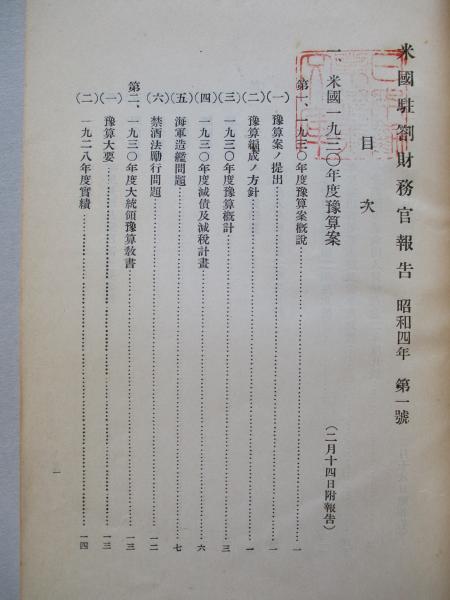 米國駐箚財務官報告 昭和四年 第一號
目次
一、米國一九三〇年度豫算案 (二月十四日附報告)
第一、一九三〇年度豫算案概說 一
(一) 豫算案ノ提出 一
(二) 豫算編成ノ方針 一
(三) 一九三〇年度豫算概計 三
(四) 一九三〇年度減債及減稅計畫 六
(五) 海軍造艦問題 七
(六) 禁酒法勵行問題 一二
第二、一九三〇年度大統領豫算敎書 一三
(一) 豫算大要 一三
(二) 一九二八年度實績 一四
一